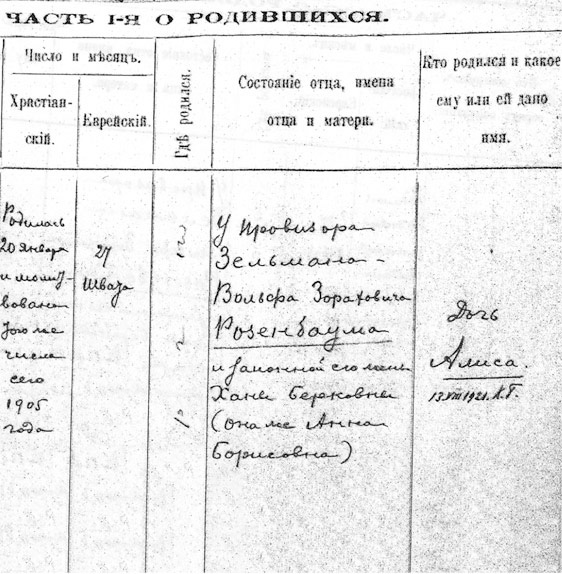 ЧАСТЬ I-Я О РОДИВШИХСЯ.
Число и мѣсяцъ.
Христіан-
скій.
Еврейскій.
Гдѣ родился.
Состояніе отца, имена
отца и матери.
Кто родился и какое
ему или ей дано
имя.
Родилась
20 января
и
вована
того же
числа
сего
1905
года
27
Швата
У провизора
Зельмана-
Вольфа Зораховича
Розенбаума
и законной его жены
Ханы Берковны
(она же Анна
Борисовна)
Дочь
Алиса.
13 VIII 1921.